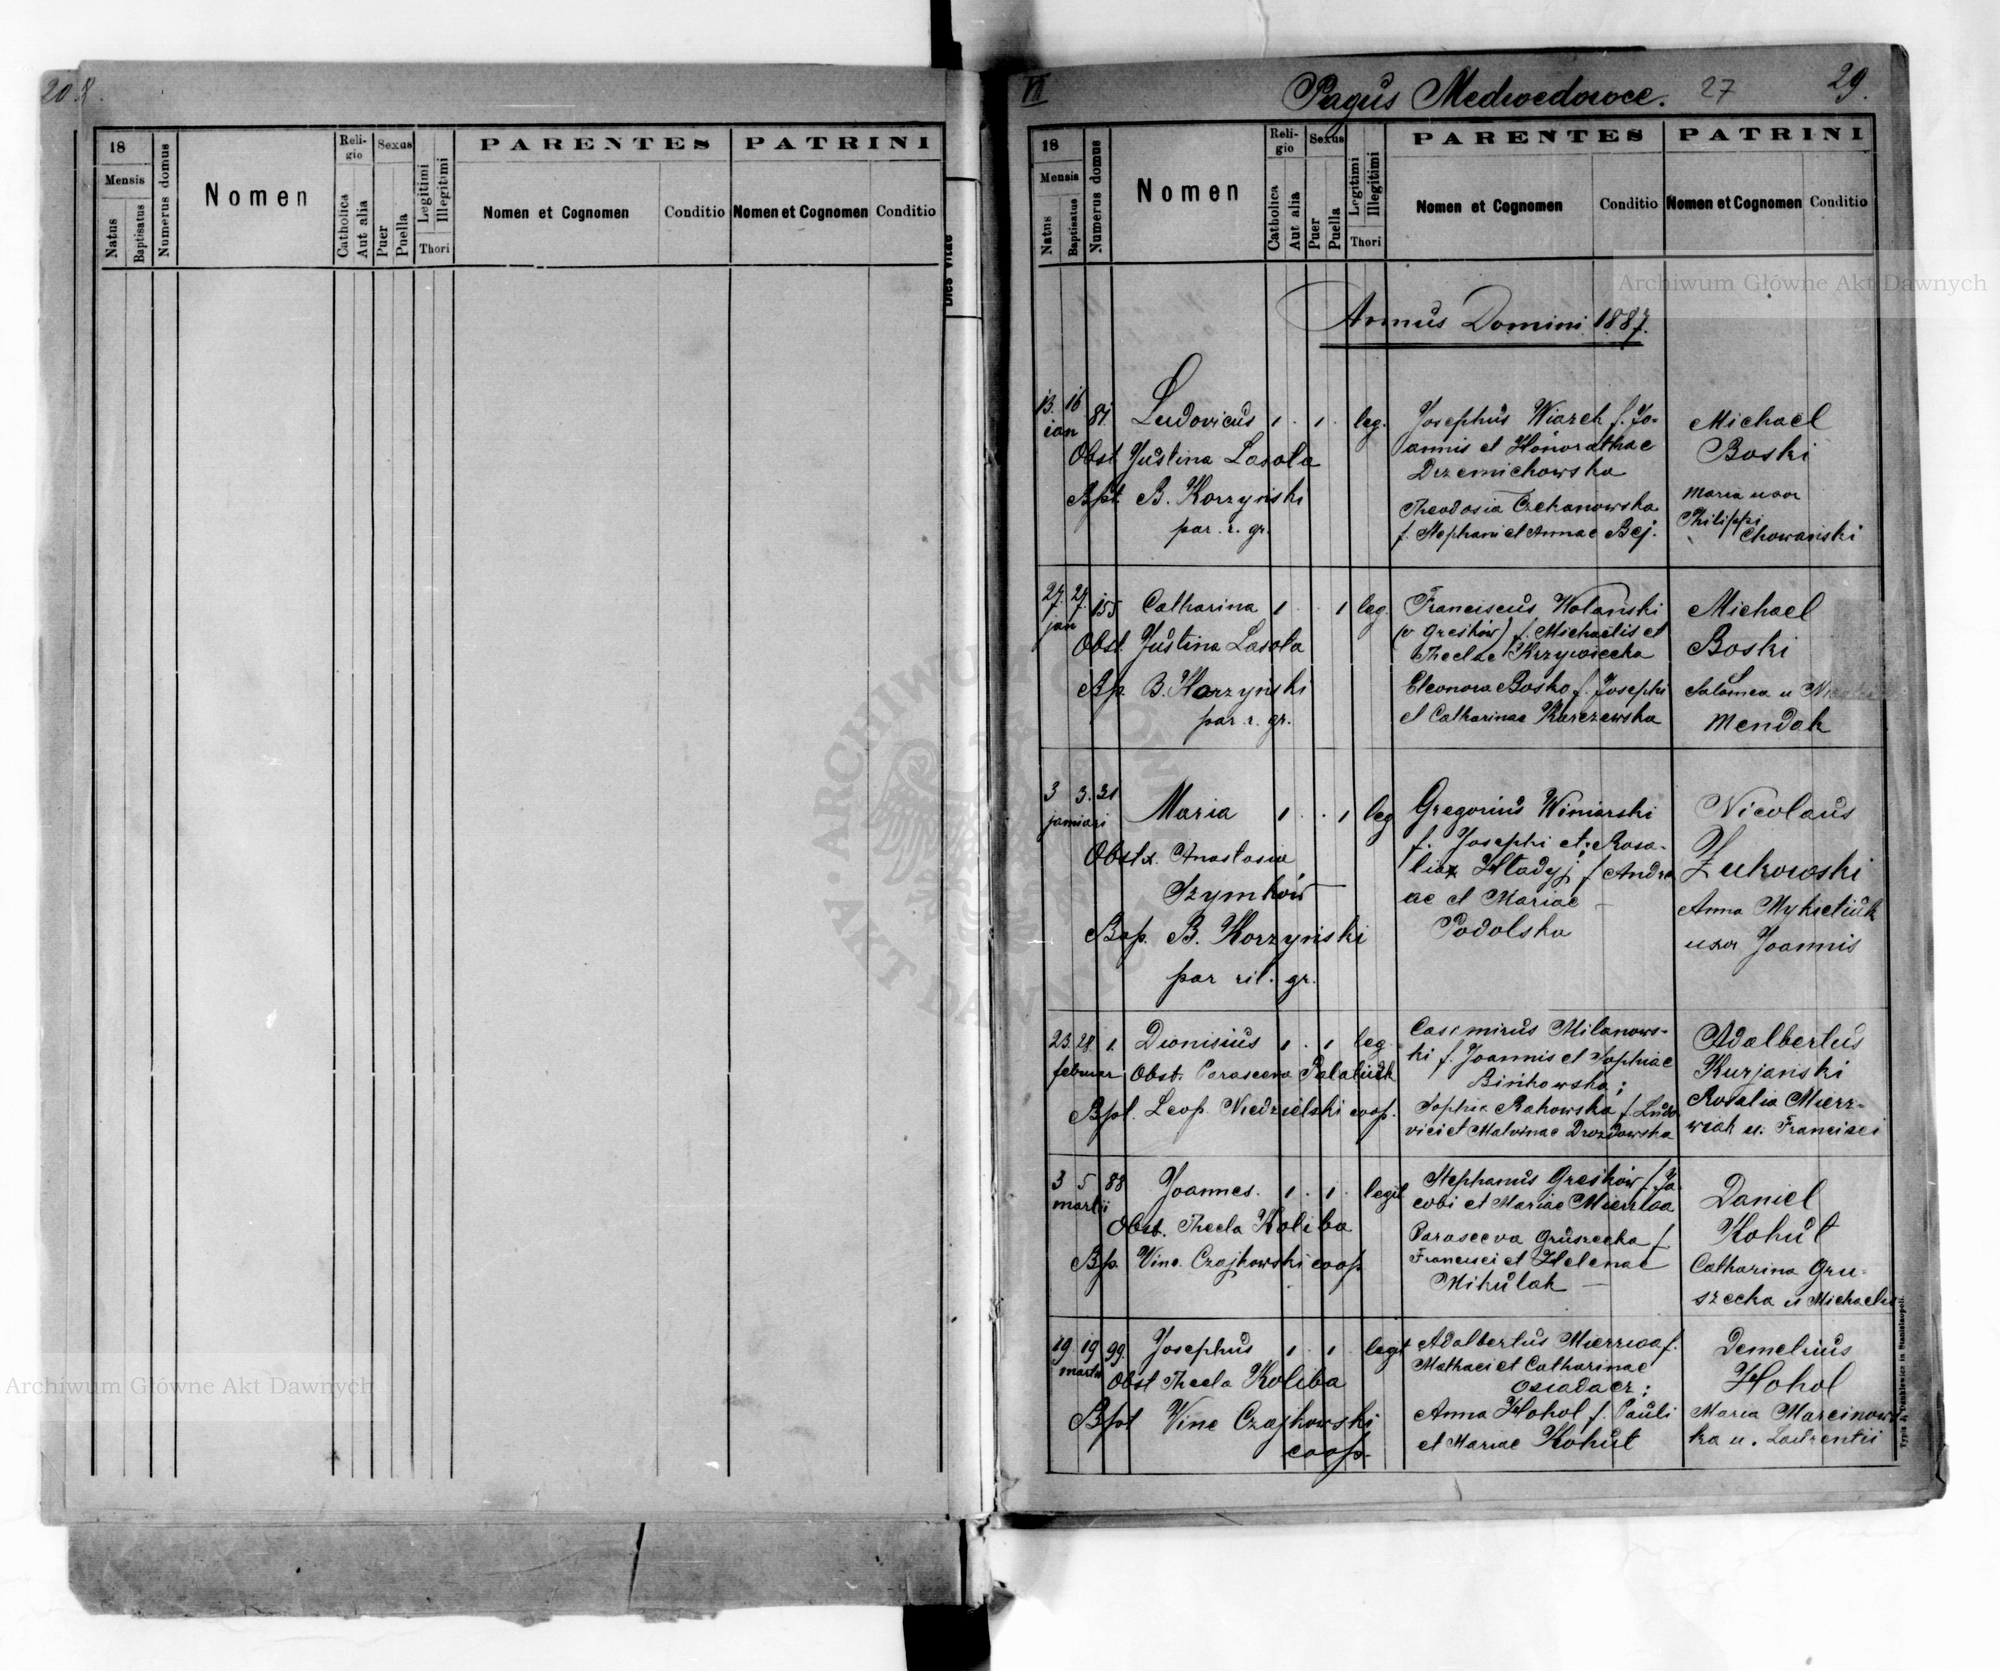 208.
18
Mensis
Natus
Baptisatus
Numerus domus
Nomen
Religio
Catholica
Aut alia
Sexus
Puer
Puella
Legitimi
Illegitimi
Thori
PARENTES
Nomen et Cognomen
Conditio
PATRINI
Nomen et Cognomen
Conditio
Dies vitae
VI
Pagus Medwedowce.
27
29.
18
Mensis
Natus
Baptisatus
Numerus domus
Nomen
Religio
Catholica
Aut alia
Sexus
Puer
Puella
Legitimi
Illegitimi
Thori
PARENTES
Nomen et Cognomen
Conditio
PATRINI
Nomen et Cognomen
Conditio
Annus Domini 1887.
13. 16
ian
81.
Ludovicus 1 . 1 . leg.
Obst Justina Lasota
Bpt B. Korzyński
par. r. gr.
Josephus Wiarek f. Jo-
annis et Honorathae
Drzemichowska
Theodosia Czekanowska
f. Stephani et Annae Bej.
Michael
Boski
Maria uxor
Philippi
Chowański
27. 27.
jan
155
Catharina 1 . . 1 leg.
Obst. Justina Lasota
Bp. B. Korzyński
par. r. gr.
Franciscus Wolański
(v Greśków) f. Michaelis et
Theclae Krzywiecka
Eleonora Bosko f. Josephi
et Catharinae Karczewska
Michael
Boski
Salomea u
Mendak
3 3. 31
januari
Maria 1 . . 1 leg
Obstx. Anastasia
Szymków
Bap. B. Korzyński
par rit. gr.
Gregorius Winiarski
f. Josephi et Rosa-
liae Hladyj f Andre
ae et Mariae
Podolska
Nicolaus
Żukowski
Anna Mykietiuk
uxor Joannis
23. 28. 1.
februar
Dionisius 1 . 1 leg
Obst. Parasceva Palatiuk
Bpt. Leop. Niedzielski coop.
Casimirus Milanows-
ki f. Joannis et Sophiae
Bińkowska;
Sophia Rakowska f. Ludo
vici et Malvinae Drozdowska
Adalbertus
Kurjanski
Rosalia Mierz-
wiak u. Francisci
3 5 88
martii
Joannes. 1 . 1 . legit
Obst. Thecla Koliba
Bp. Vinc. Czajkowski coop
Stephanus Greśków f. Ja
cobi et Mariae Mierzwa
Parasceva Gruszecka f
Francisci et Helenae
Mikulak
Daniel
Kohut
Catharina Gru-
szecka u Michaelis
19. 19 99.
martii
Josephus 1 . 1 . legit
Obst Thecla Koliba
Bpt Vinc Czajkowski
coop.
Adalbertus Mierzwa f.
Mathaei et Catharinae
Osiadacz;
Anna Hohol f. Pauli
et Mariae Kohut
Demetrius
Hohol
Maria Marcinows
ka u. Laurentii
Archiwum Główne Akt Dawnych
Archiwum Główne Akt Dawnych